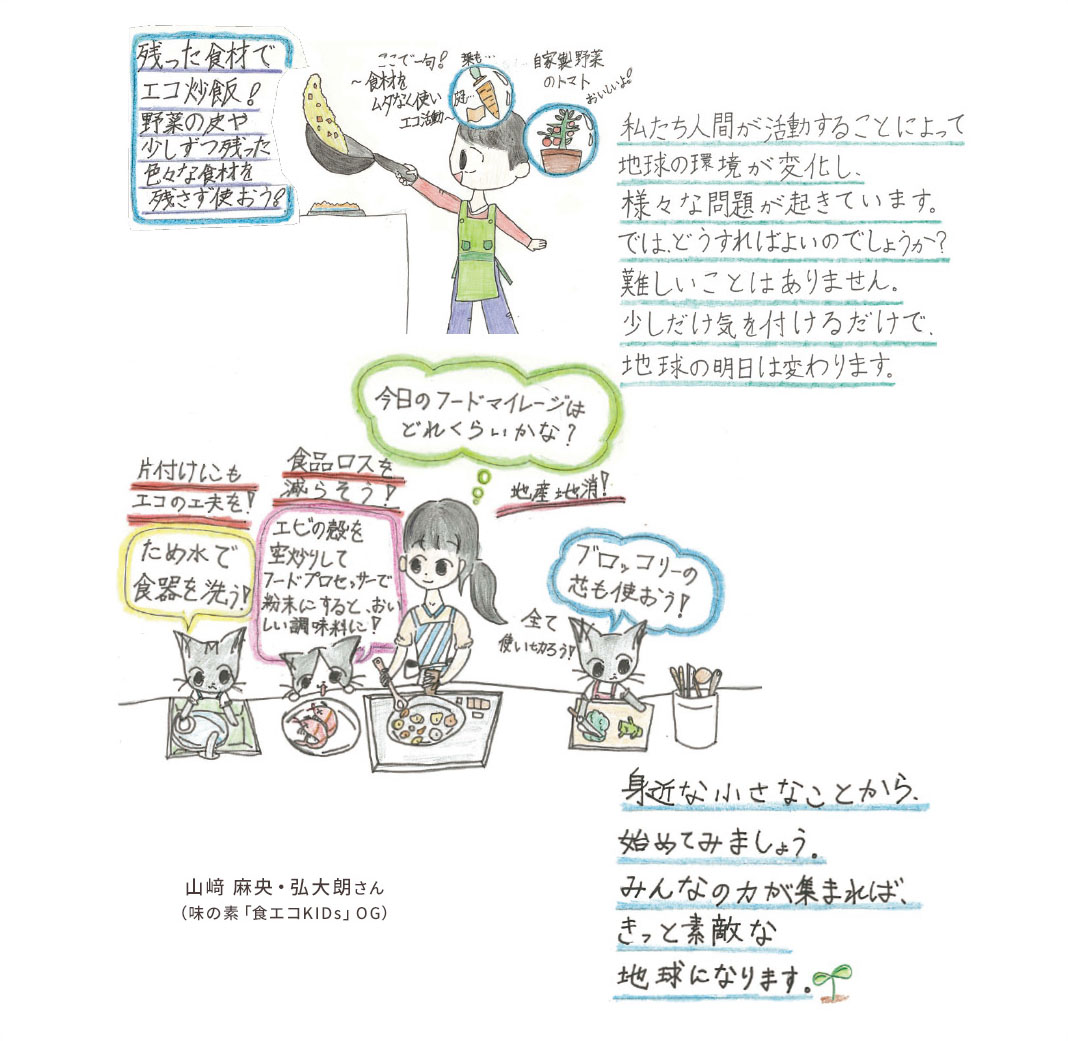 残った食材で
エコ炒飯!
野菜の皮や
少しずつ残った
色々な食材を
残さず使おう!
ここで一句!
~食材を
ムダなく使い
エコ活動~
葉も…
皮…
自家製野菜
のトマト
おいしいよ!
私たち人間が活動することによって
地球の環境が変化し、
様々な問題が起きています。
では、どうすればよいのでしょうか?
難しいことはありません。
少しだけ気を付けるだけで、
地球の明日は変わります。
今日のフードマイレージは
どれくらいかな?
片付けにも
エコの工夫を!
食品ロスを
減らそう!
地産地消!
ため水で
食器を洗う!
エビの殻を
空炒りして
フードプロセッサーで
粉末にすると、おい
しい調味料に!
ブロッコリーの
芯も使おう!
全て
使い切ろう!
身近な小さなことから、
始めてみましょう。
みんなの力が集まれば、
きっと素敵な
地球になります。
山﨑 麻央・弘大朗さん
(味の素「食エコKIDs」OG)